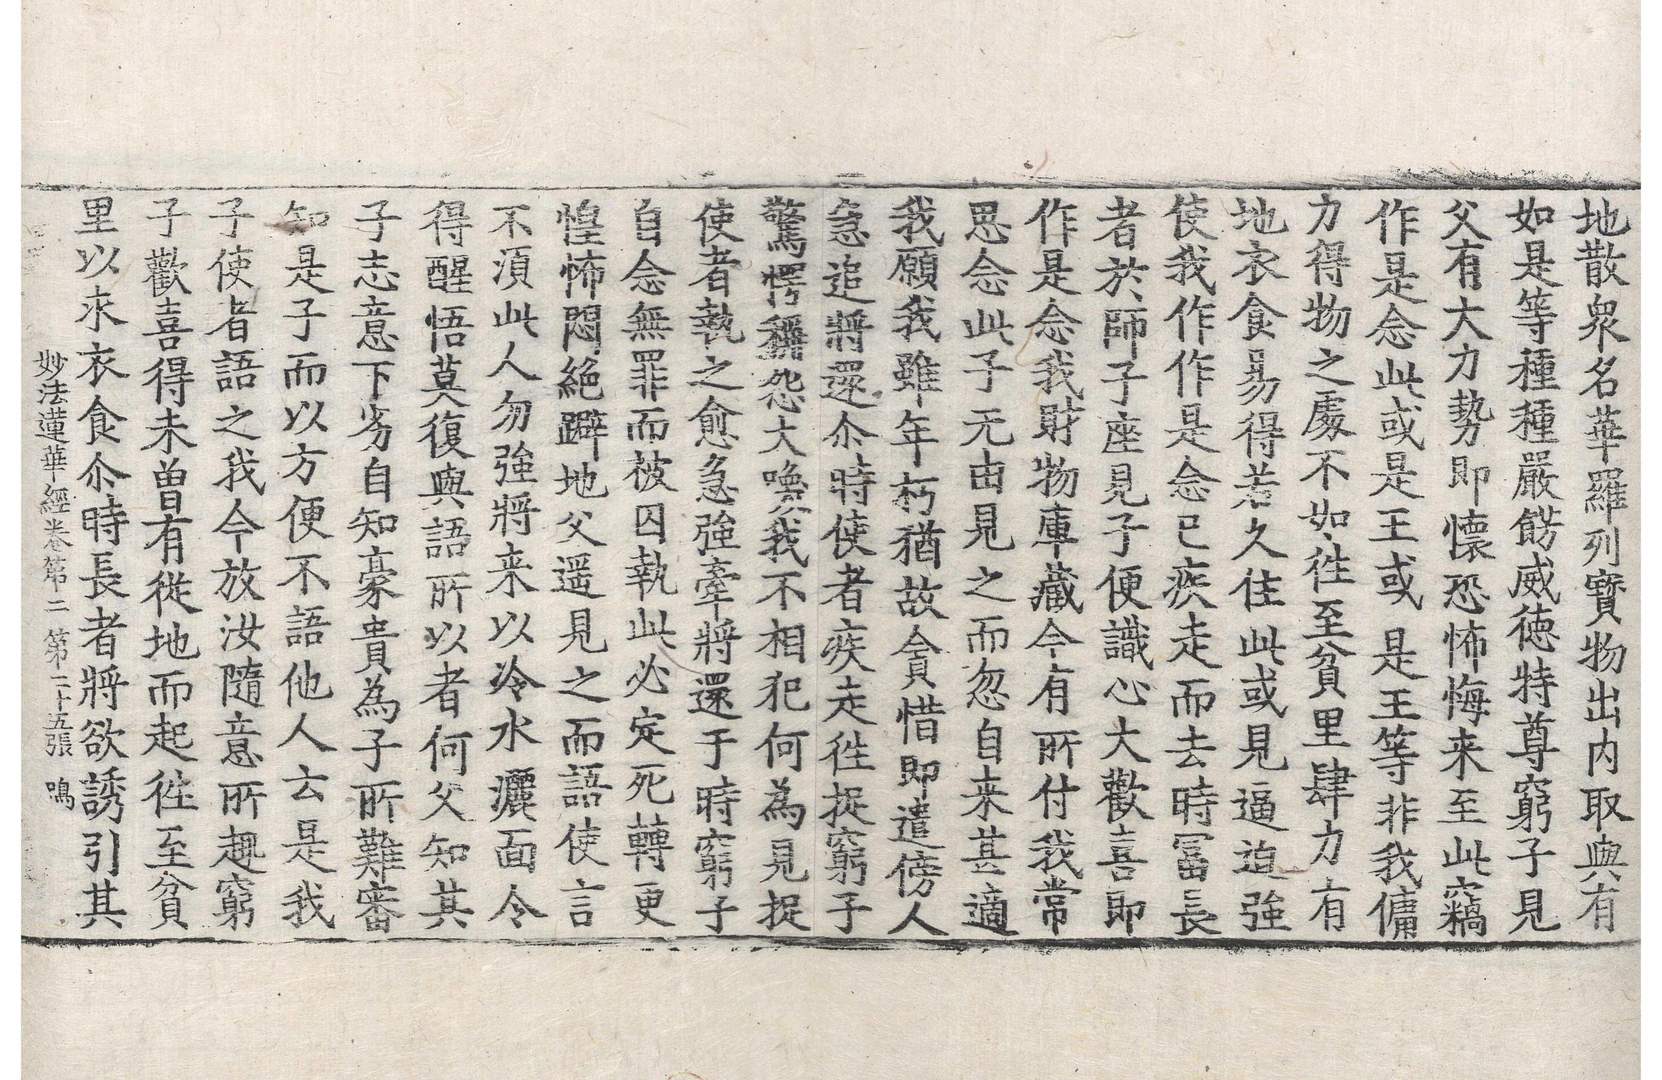 地散衆名華羅列寳物出内取與有
如是等種種嚴餝威徳特尊窮子見
父有大力勢即懷恐怖悔来至此竊
作是念此或是王或是王等非我傭
力得物之處不如徃至貧里肆力有
地衣食易得若久住此或見逼迫強
使我作作是念已疾走而去時冨長
者於師子座見子便識心大歡喜即
作是念我財物庫藏今有所付我常
思念此子无由見之而忽自来甚適
我願我雖年朽猶故貪惜即遣傍人
急追將還尒時使者疾走徃捉窮子
驚愕稱怨大喚我不相犯何為見捉
使者執之愈急強牽將還于時窮子
自念無罪而被囚執此必定死轉更
惶怖悶絕躃地父遥見之而語使言
不湏此人勿強將来以冷水灑面令
得醒悟莫復與語所以者何父知其
子志意下劣自知豪貴為子所難審
知是子而以方便不語他人云是我
子使者語之我今放汝隨意所趣窮
子歡喜得未曽有從地而起徃至貧
里以求衣食尒時長者將欲誘引其
妙法蓮華經卷第二 第二十五張 鳴